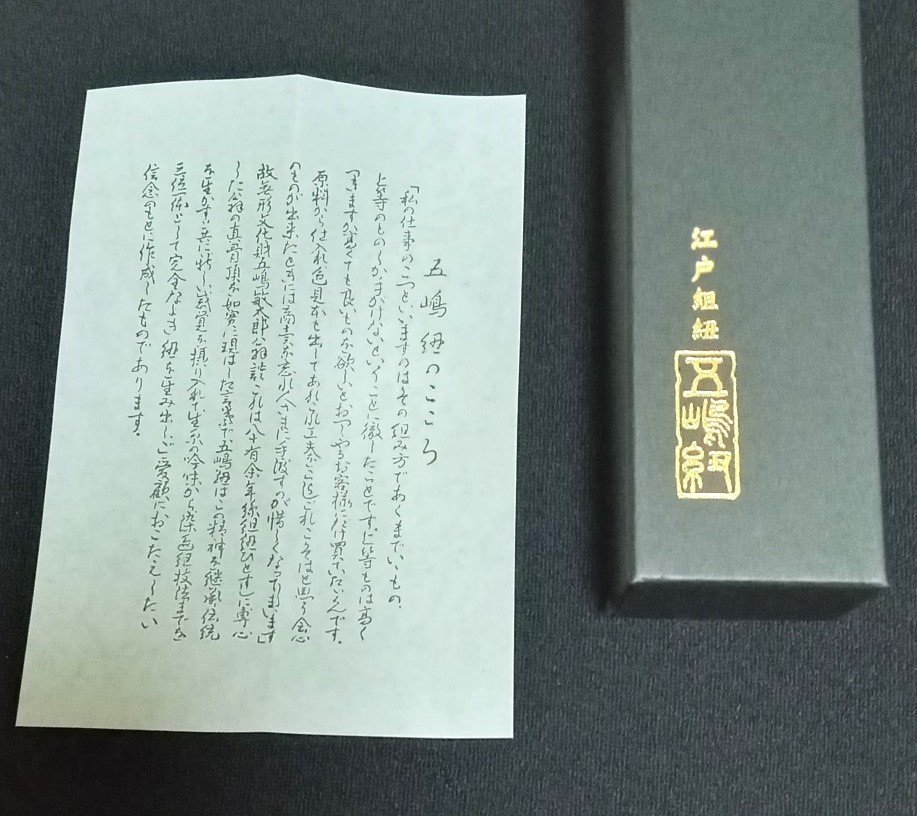 五嶋紐のこころ
「私の仕事のこつといいますのはその組み方であくまでいいもの、
上等のものしか手がけないということに徹したことです。上等ものは高く
つきますが高くても良いものを欲しいとおっしゃるお客様にだけ買っていただくんです。
原料から仕入れ色見本も出してあれこれ工夫してこれこそはと思う会心
のものが出来たときには商売を忘れ人さまに手渡すのが惜しくなってしまいます」
故無形文化財五嶋敏太郎翁談、これは八十有余年綜組紐ひとすじに専心
した翁の真骨頂を如実に現はした言葉で、五嶋紐はこの精神を継承伝統
を生かすと共に新しい感覚を摂り入れて生糸の吟味から染色組技法までを
三位一体として完全なよき紐を生み出しご愛顧におこたえしたい
信念のもとに作成したものであります。
江戸組紐
五嶋紐